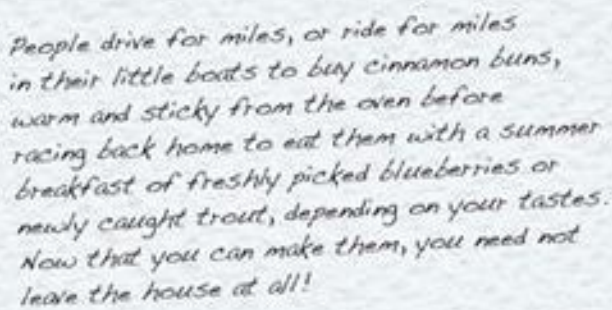 People drive for miles, or ride for miles
in their little boats to buy cinnamon buns,
warm and sticky from the oven before
racing back home to eat them with a summer
breakfast of freshly picked blueberries or
newly caught trout, depending on your tastes.
Now that you can make them, you need not
leave the house at all!